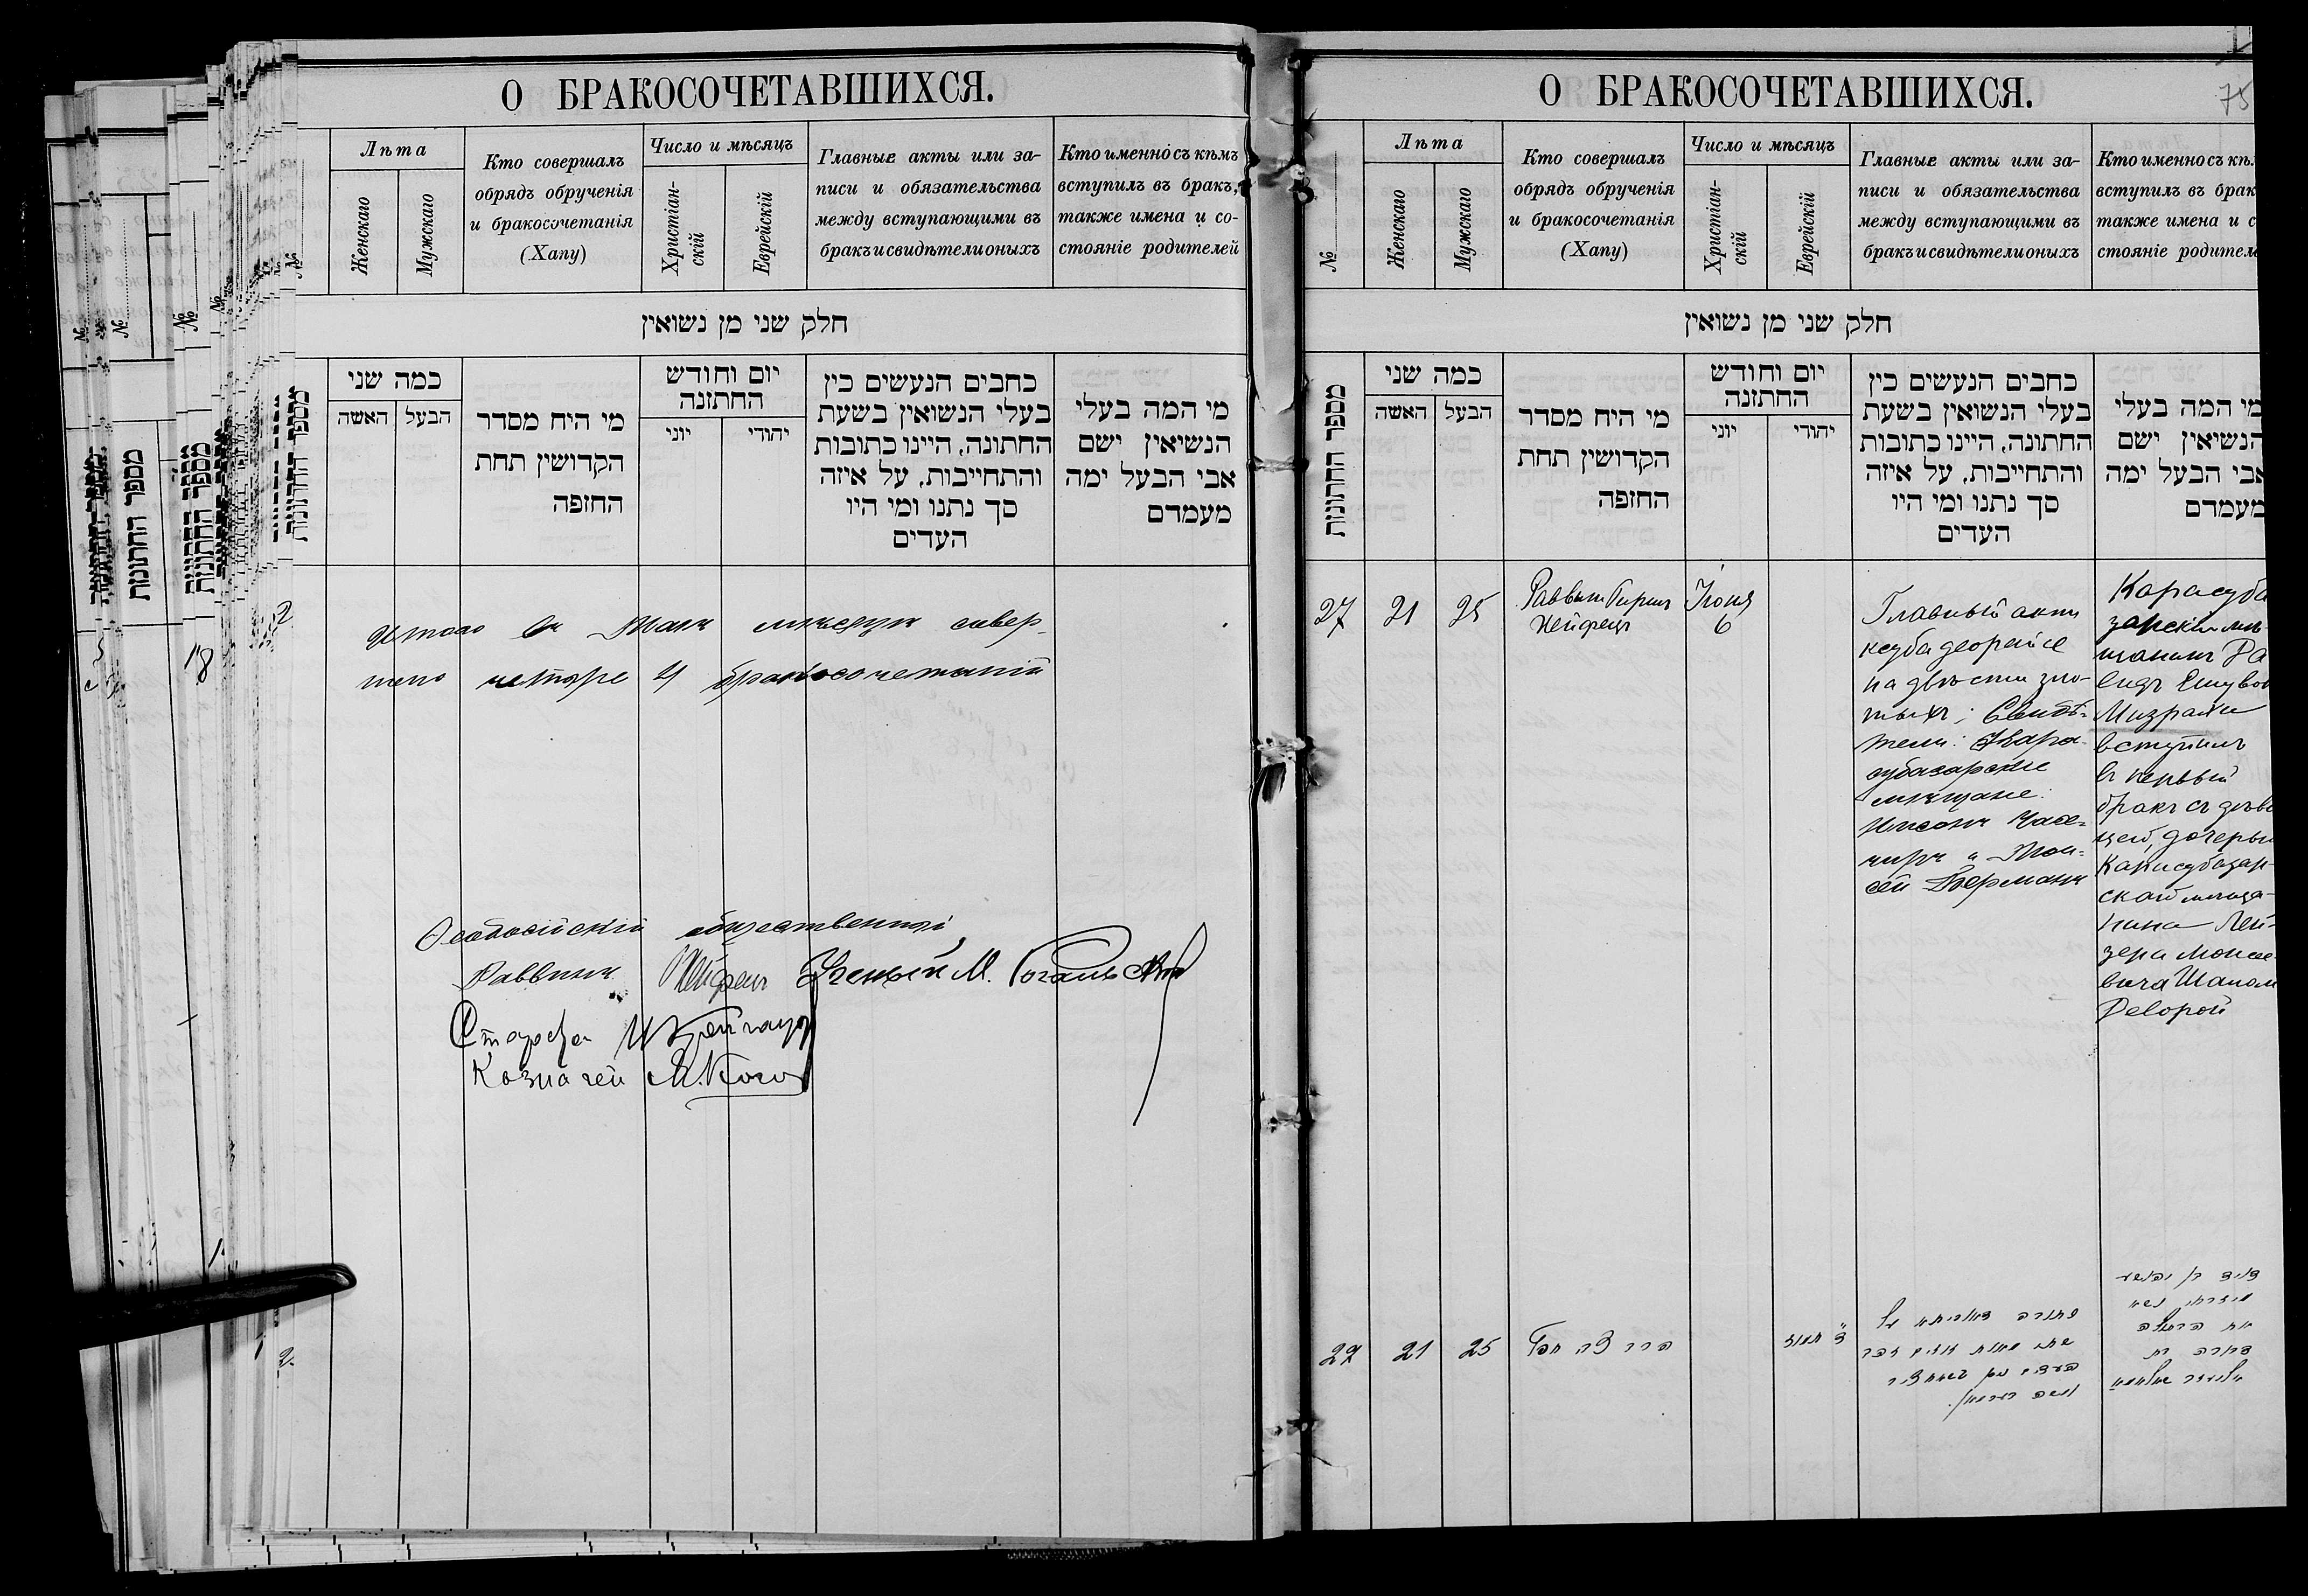 О БРАКОСОЧЕТАВШИХСЯ.
№
Лѣта
Женскаго
Мужскаго
Кто совершалъ
обрядъ обрученія
и бракосочетанія
(Хапу)
Число и мѣсяцъ
Христіан-
скій
Еврейскій
Главные акты или за-
писи и обязательства
между вступающими въ
бракъ и свидѣтели оныхъ
Кто именно съ кѣмъ
вступилъ въ бракъ,
также имена и со-
стояніе родителей
חלק שני מן נשואין
מספר החתונות
כמה שני
האשה
הבעל
מי היח מסדר
הקדושין תחת
החזפה
יום וחודש
החתזנה
יוני
יהודי
כחבים הנעשים כין
בעלי הנשואין בשעת
החתונה, היינו כתובות
והתחייבות, על איזה
סך נתנו ומי היו
העדים
מי המה בעלי
הנשיאין ישם
אבי הבעל ימה
מעמדם
Итого въ Маѣ мѣсяцѣ совер-
шено четыре 4 бракосочетаній
Ѳеодосійскій общественный
Раввинъ Хейфецъ Ученый М.
Староста
Казначей М. Коган
О БРАКОСОЧЕТАВШИХСЯ.
75
№
Лѣта
Женскаго
Мужскаго
Кто совершалъ
обрядъ обрученія
и бракосочетанія
(Хапу)
Число и мѣсяцъ
Христіан-
скій
Еврейскій
Главные акты или за-
писи и обязательства
между вступающими въ
бракъ и свидѣтели оныхъ
Кто именно съ кѣм
вступилъ въ брак
также имена и с
стояніе родителе
חלק שני מן נשואין
מספר החתונות
כמה שני
האשה
הבעל
מי היח מסדר
הקדושין תחת
החזפה
יום וחודש
החתזנה
יוני
יהודי
כחבים הנעשים כין
בעלי הנשואין בשעת
החתונה, היינו כתובות
והתחייבות, על איזה
סך נתנו ומי היו
העדים
מי המה בעלי
הנשיאין ישם
אבי הבעל ימה
מעמדם
27 21 25
Раввинъ Гиршъ
Хейфецъ
Іюня
6
Главный актъ
ксуба деорайсе
на двѣсти зло-
тыхъ; Свидѣ-
тели: Кара
субазарскіе
мѣщане:
сей Берманъ
Карасуба
зарскій мѣ-
щанинъ Да
видъ Ешувов
Мизрахи
вступилъ
въ первый
бракъ съ дѣви
цей, дочерью
Карасубазар-
скаго мѣща-
нина Лей-
зера Моисе
вича Шалом
Деворой
27 21 25